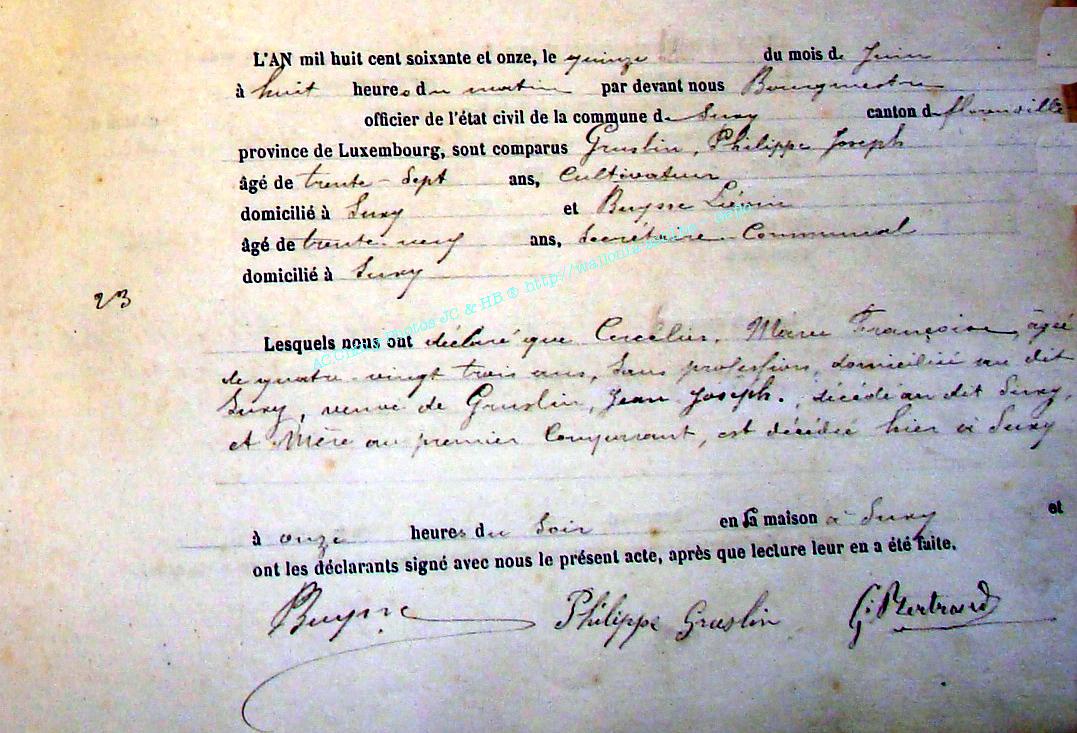 L'AN mil huit cent soixante et onze, le quinze du mois de Juin
à huit heures du matin par devant nous Bourgmestre
officier de l'état civil de la commune de Suxy canton de florenville
province de Luxembourg, sont comparus Gruslin, Philippe Joseph
âgé de trente-sept ans, Cultivateur
domicilié à Suxy et Buysse Liévin
âgé de trente-neuf ans, Secrétaire Communal
domicilié à Suxy
23
Lesquels nous ont déclaré que Marie Françoise, agée
de quatre-vingt trois ans, Sans profession, domiciliée au dit
Suxy, veuve de Gruslin, Jean Joseph, décédé au dit Suxy,
et Mère au premier Comparant, est décédée hier à Suxy
à onze heures du Soir en sa maison à Suxy et
ont les déclarants signé avec nous le présent acte, après que lecture leur en a été faite.
Buysse Philippe Gruslin G. Bertrand
Photos JC & HB ® http://